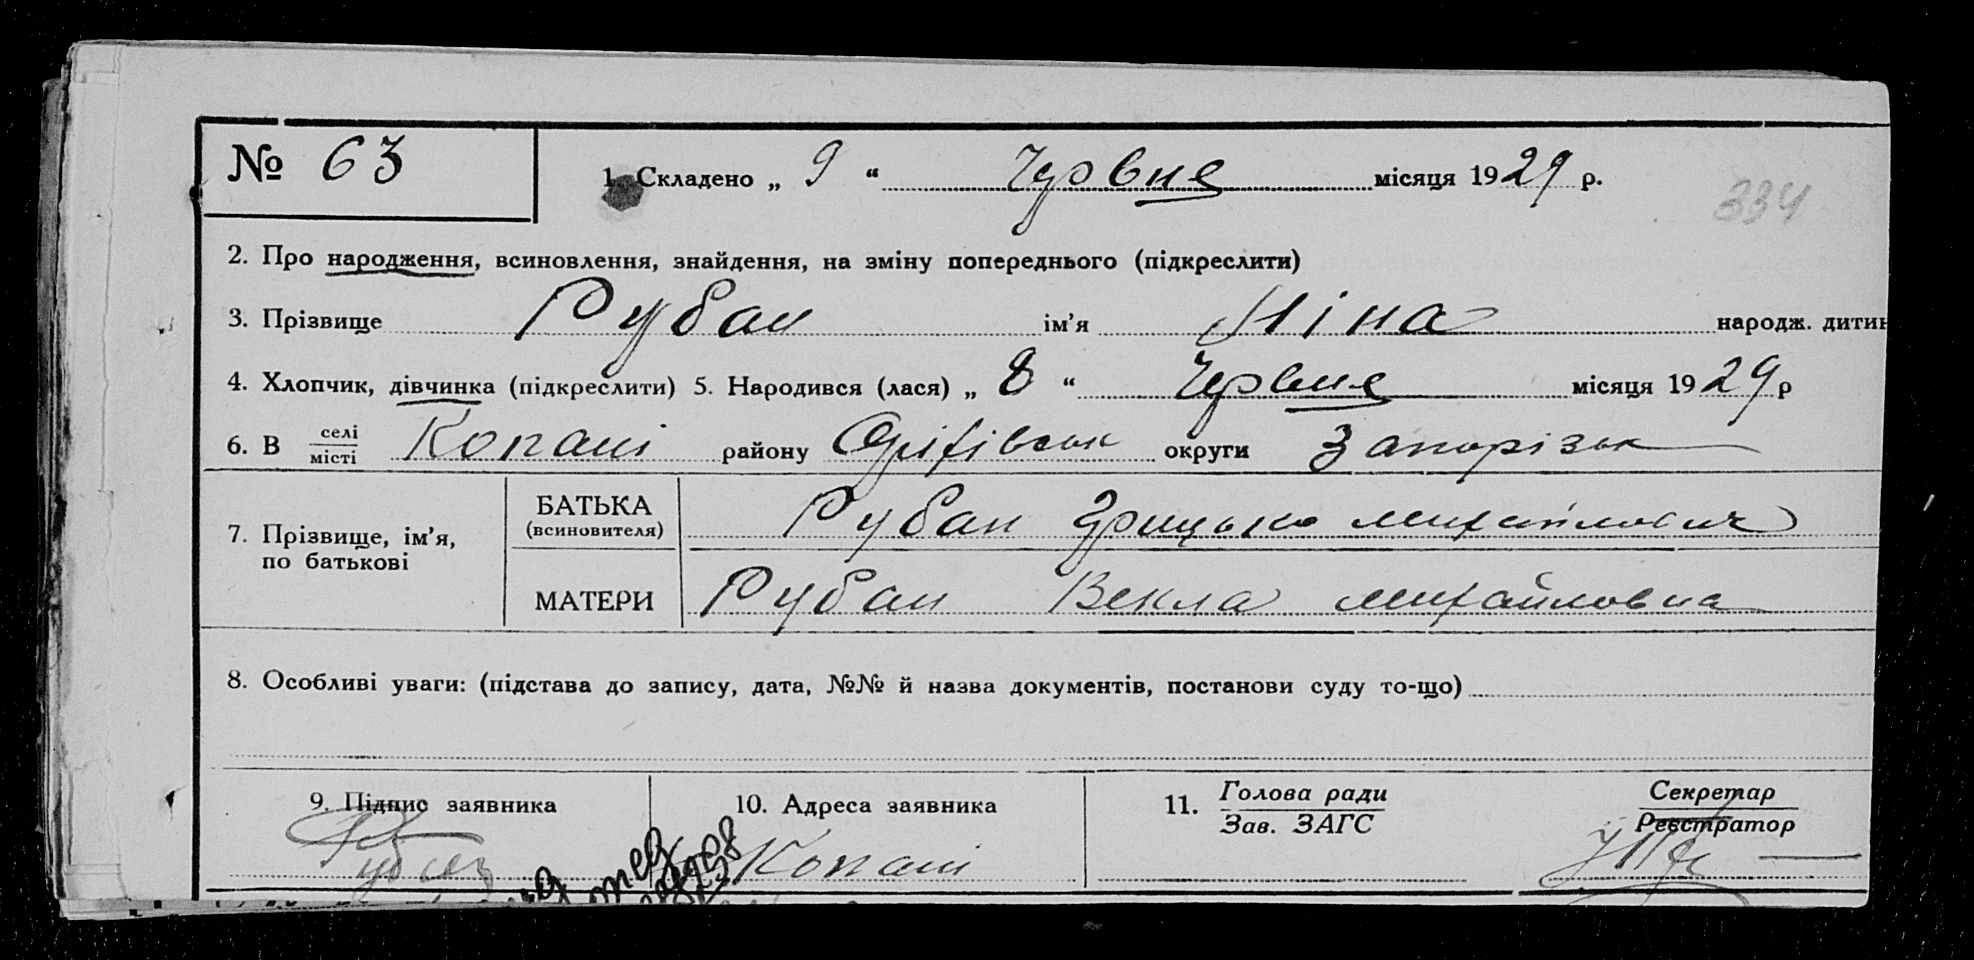 № 63
1. Складено „ 9 “ Червня місяця 1929 р.
334
2. Про народження, всиновлення, знайдення, на зміну попереднього (підкреслити)
3. Прізвище Рубан ім’я Ніна народж. дитин
4. Хлопчик, дівчинка (підкреслити) 5. Народився (лася) „ 8 “ Червня місяця 1929 р
6. В селі/місті Копані району Оріхівськ округи Запорізьк
7. Прізвище, ім’я, по батькові
БАТЬКА (всиновителя) Рубан Грицько Михайлович
МАТЕРИ Рубан Векла Михайловна
8. Особливі уваги: (підстава до запису, дата, №№ й назва документів, постанови суду то-що)
9. Підпис заявника 10. Адреса заявника 11. Голова ради Секретар
Зав. ЗАГС Реєстратор
Рубан Копані